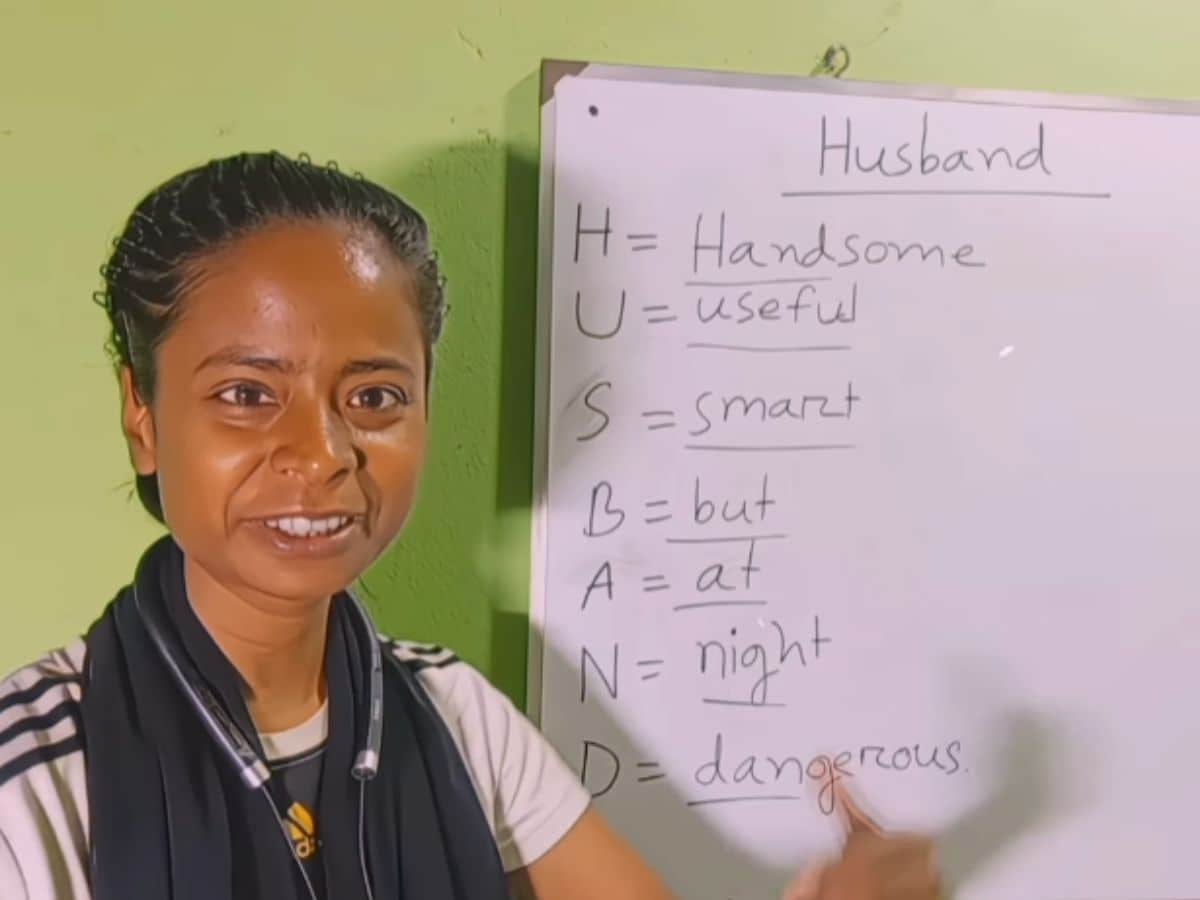 Husband
H = Handsome
U = useful
S = smart
B = but
A = at
N = night
D = dangerous.